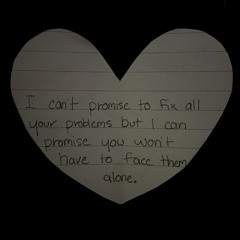 I can't promise to fix all
your problems but I can
promise you won't
have to face them
alone.